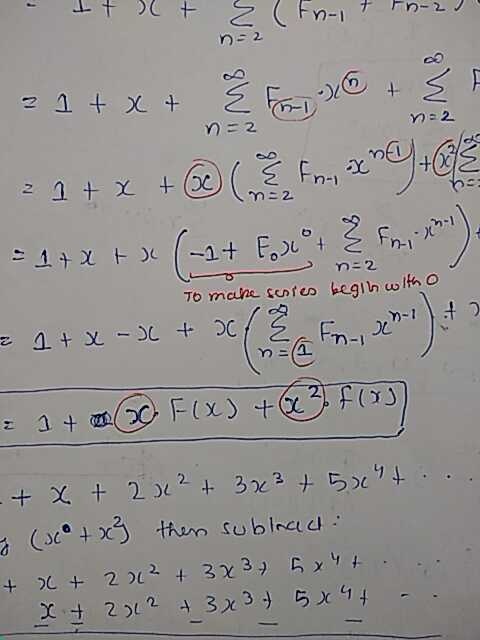 1 + x + ∑ n=2 ( F n-1 + F n-2 )
= 1 + x + ∞ ∑ n=2 F n-1 · x^n + ∞ ∑ n=2
= 1 + x + x ( ∞ ∑ n=2 F n-1 · x^n-1 ) + x^2 ( ∑ n=
= 1 + x + x ( -1 + F₀x⁰ + ∞ ∑ n=2 F n-1 · x^n-1 ) +
To make series begin with 0
= 1 + x - x + x ( ∞ ∑ n=1 F n-1 x^n-1 ) +
= 1 + x · F(x) + x² · f(x)
+ x + 2x² + 3x³ + 5x⁴ + ...
(x⁰ + x²) then subtract :
+ x + 2x² + 3x³ + 5x⁴ + ...
x + 2x² + 3x³ + 5x⁴ + ...